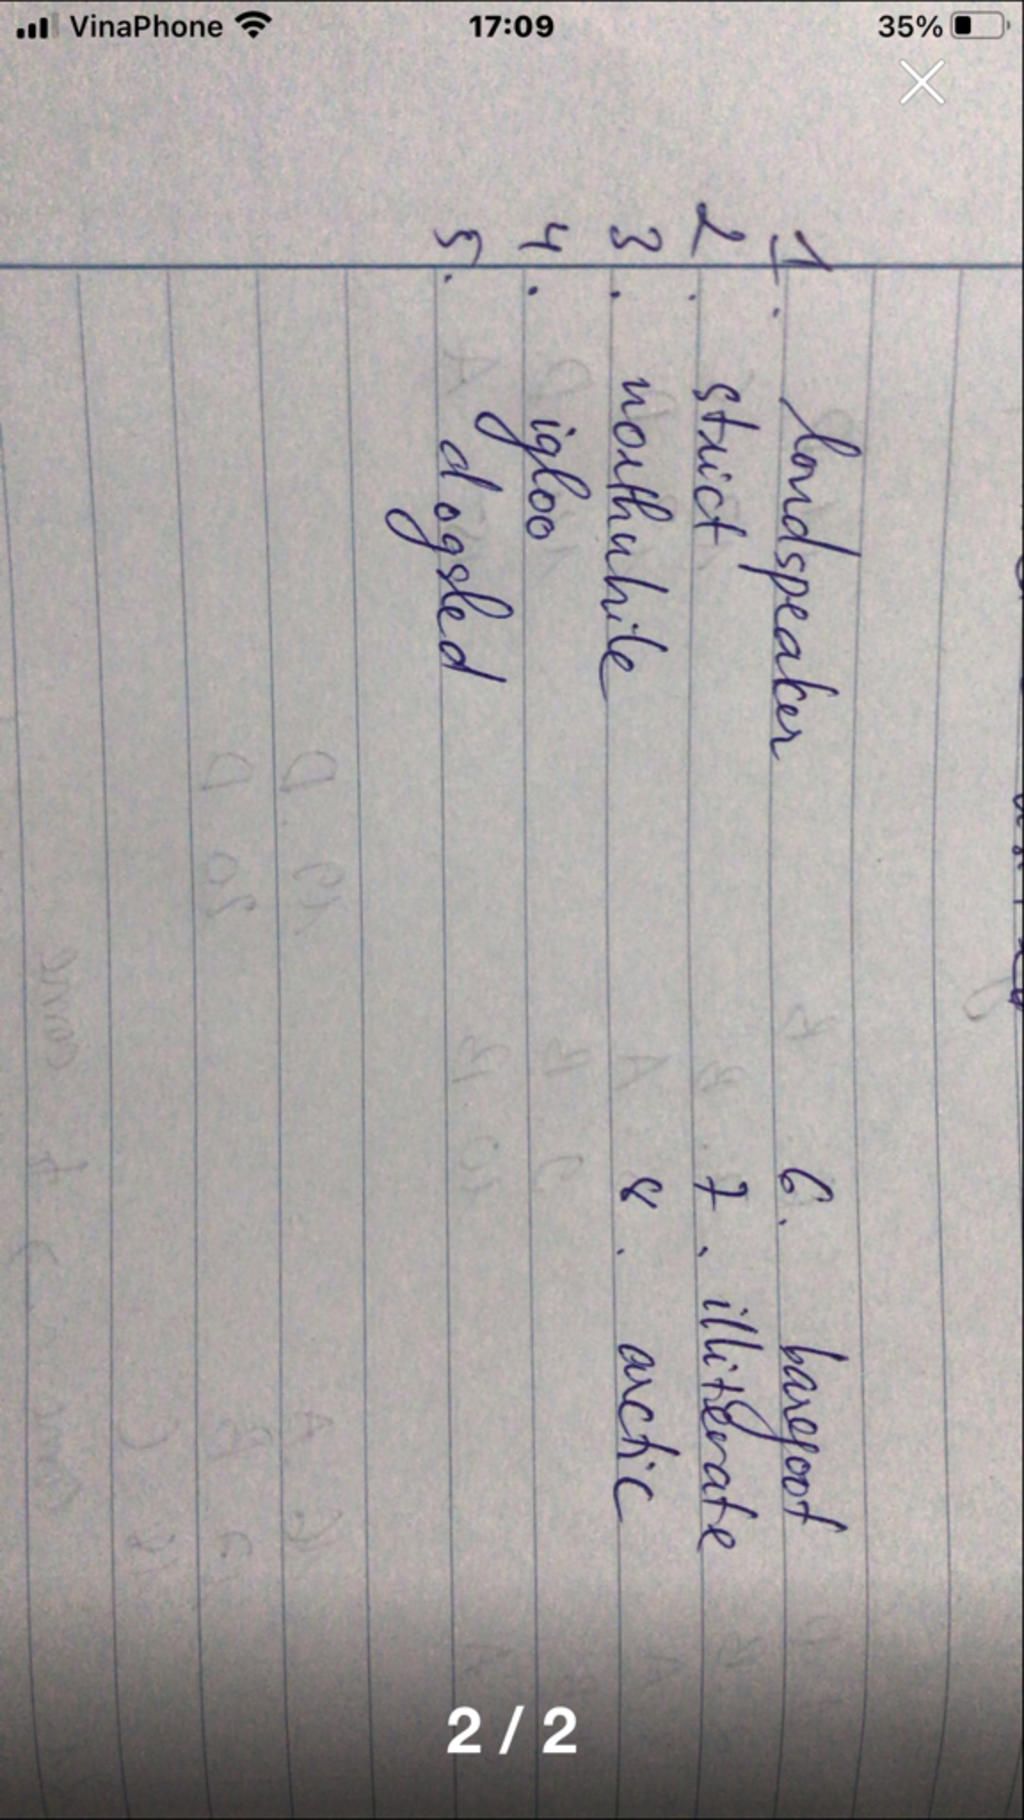 VinaPhone 17:09 35%
1. loudspeaker 6. barefoot
2. strict 7. illiterate
3. worthwhile 8. arctic
4. igloo
5. dogsled
2 / 2